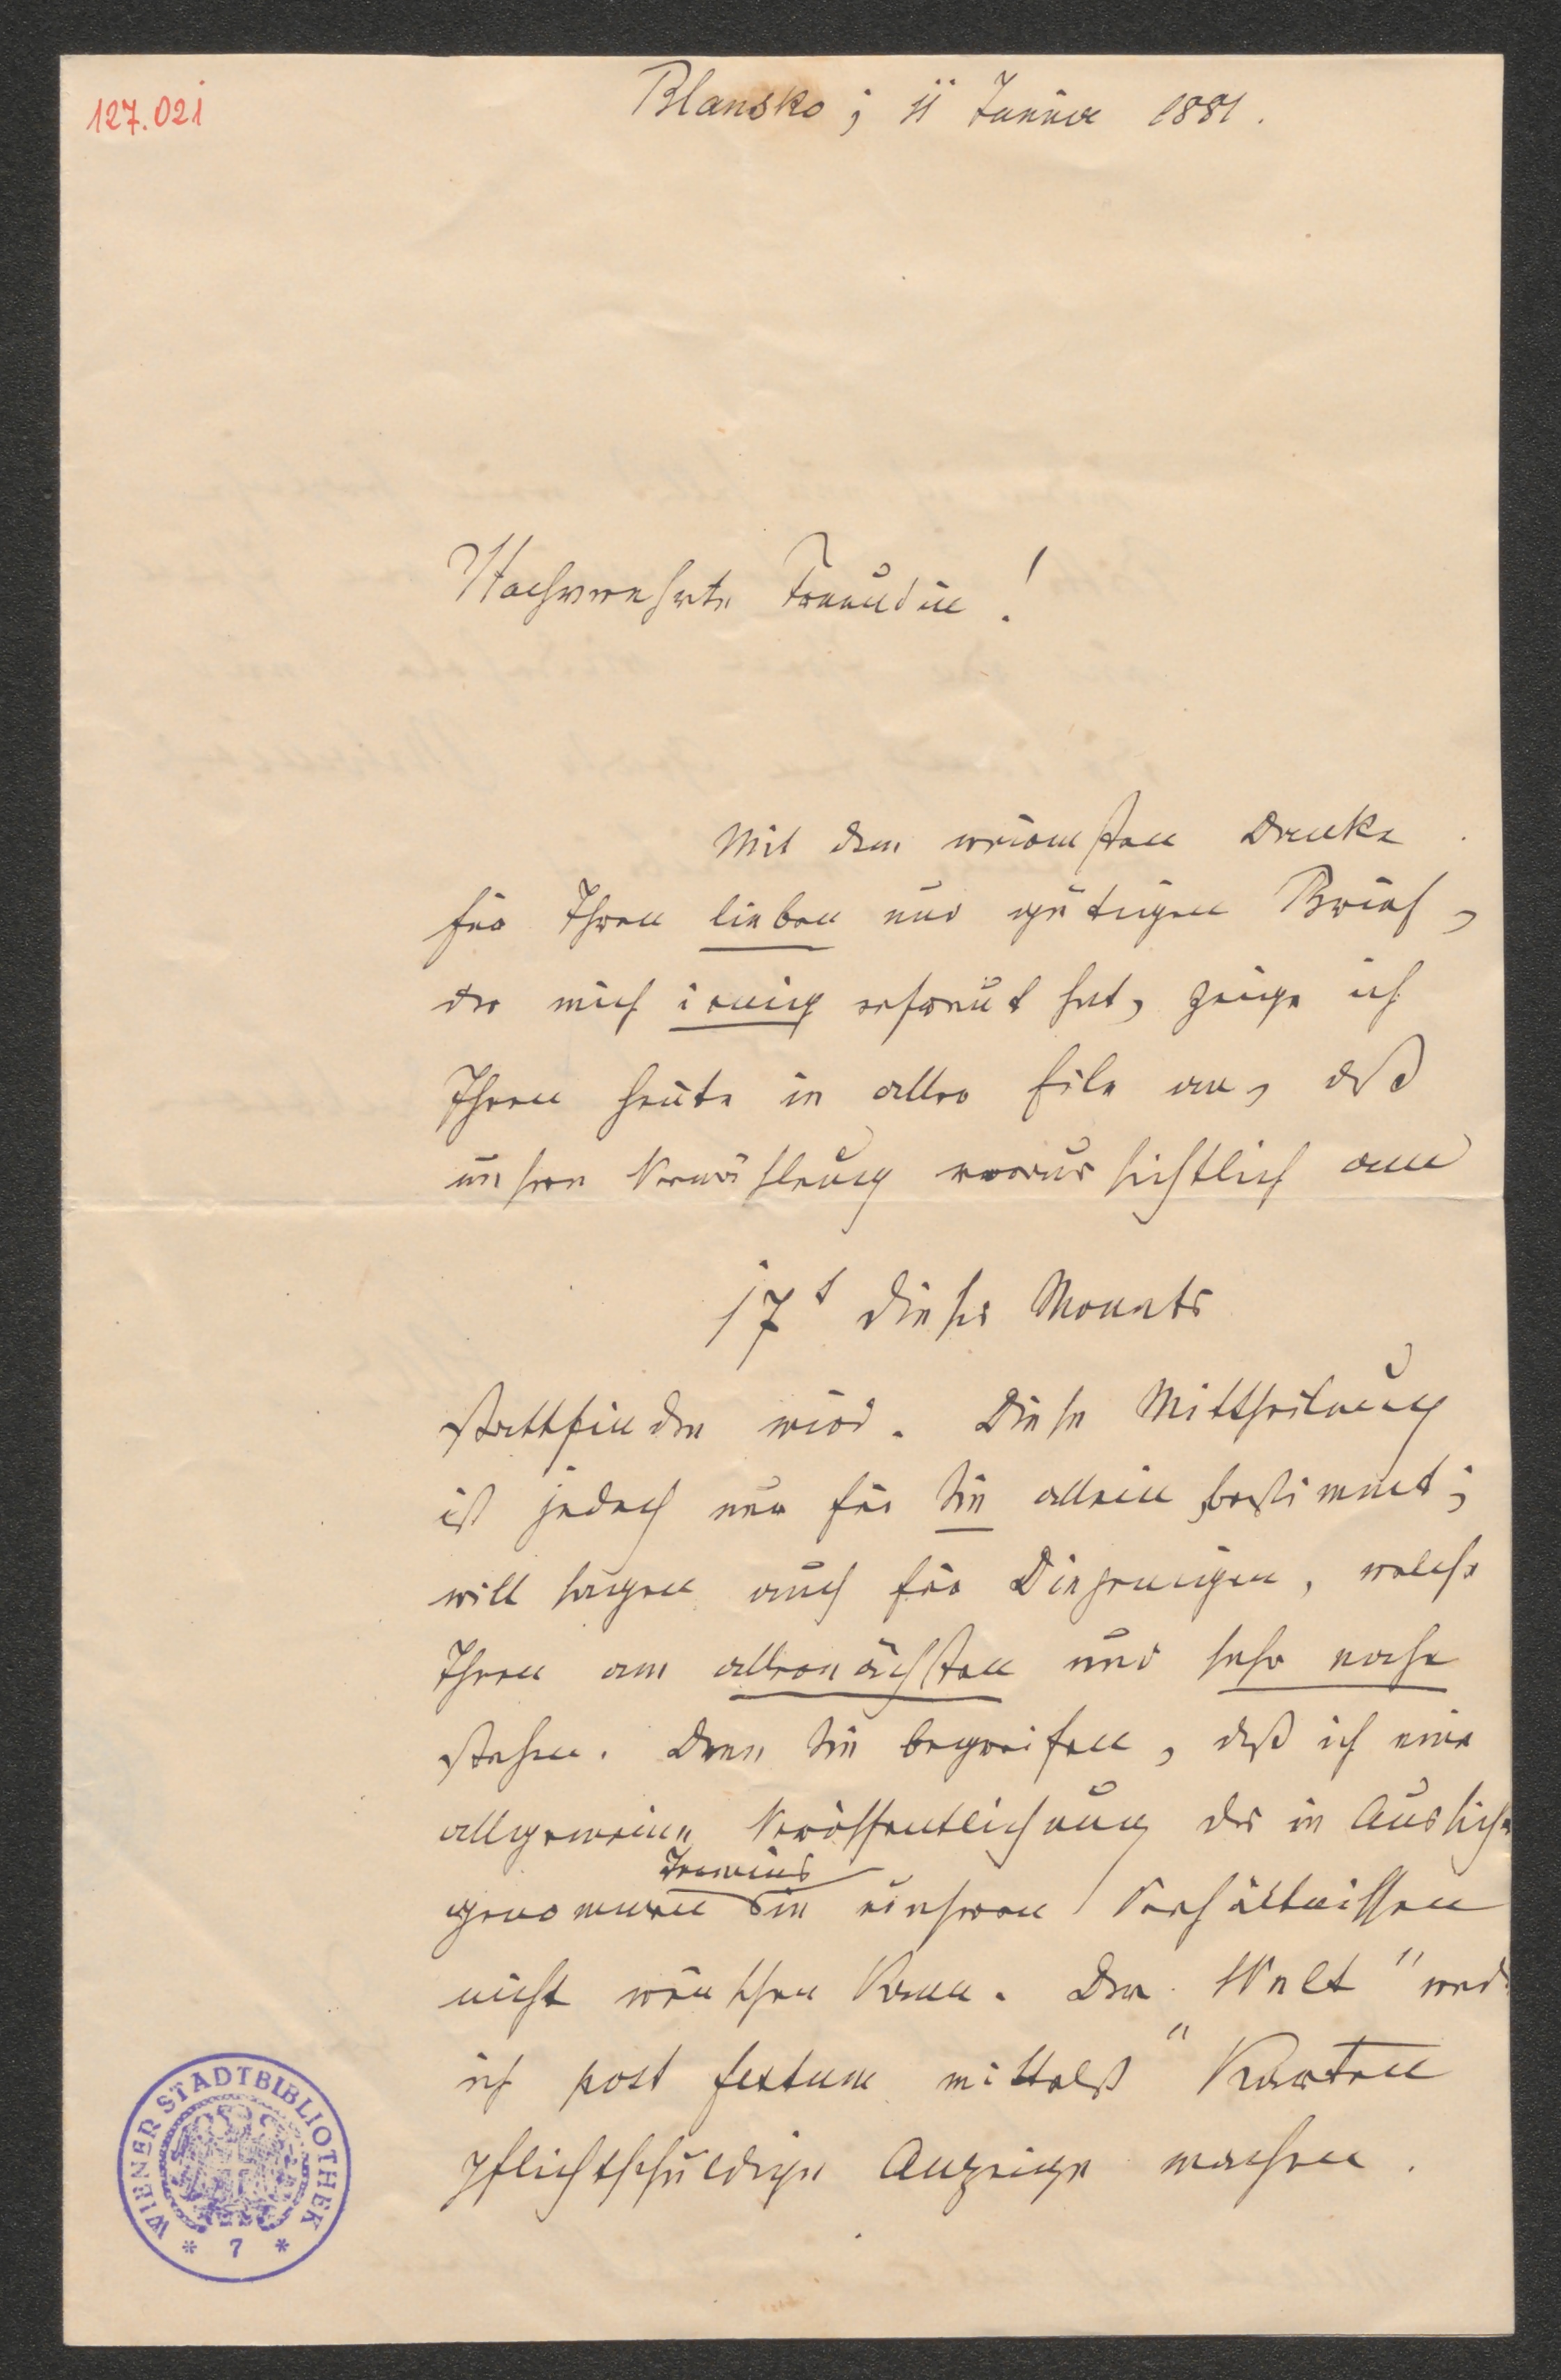 127.021
Blansko; 11 Jänner 1881.
Hochverehrte Freundin!
Mit dem wärmsten Danke
für Ihren lieben und gütigen Brief,
der mich innig erfreut hat, zeige ich
Ihnen heute in aller Eile an, daß
unsere Vermählung voraussichtlich am
17t dieses Monats
stattfinden wird. Diese Mittheilung
ist jedoch nur für Sie allein bestimmt;
will sagen auch für Diejenigen, welche
Ihnen am allernächsten und sehr nahe
stehen. Denn Sie begreifen, daß ich eine
allgemeine Veröffentlichung des in Aussicht
Termins
genommenen in unseren Verhältnissen
nicht wünschen kann. Der "Welt" werde
ich post festum mittelst Karten
pflichtschuldige Anzeige machen.
WIENER STADTBIBLIOTHEK
* 7 *